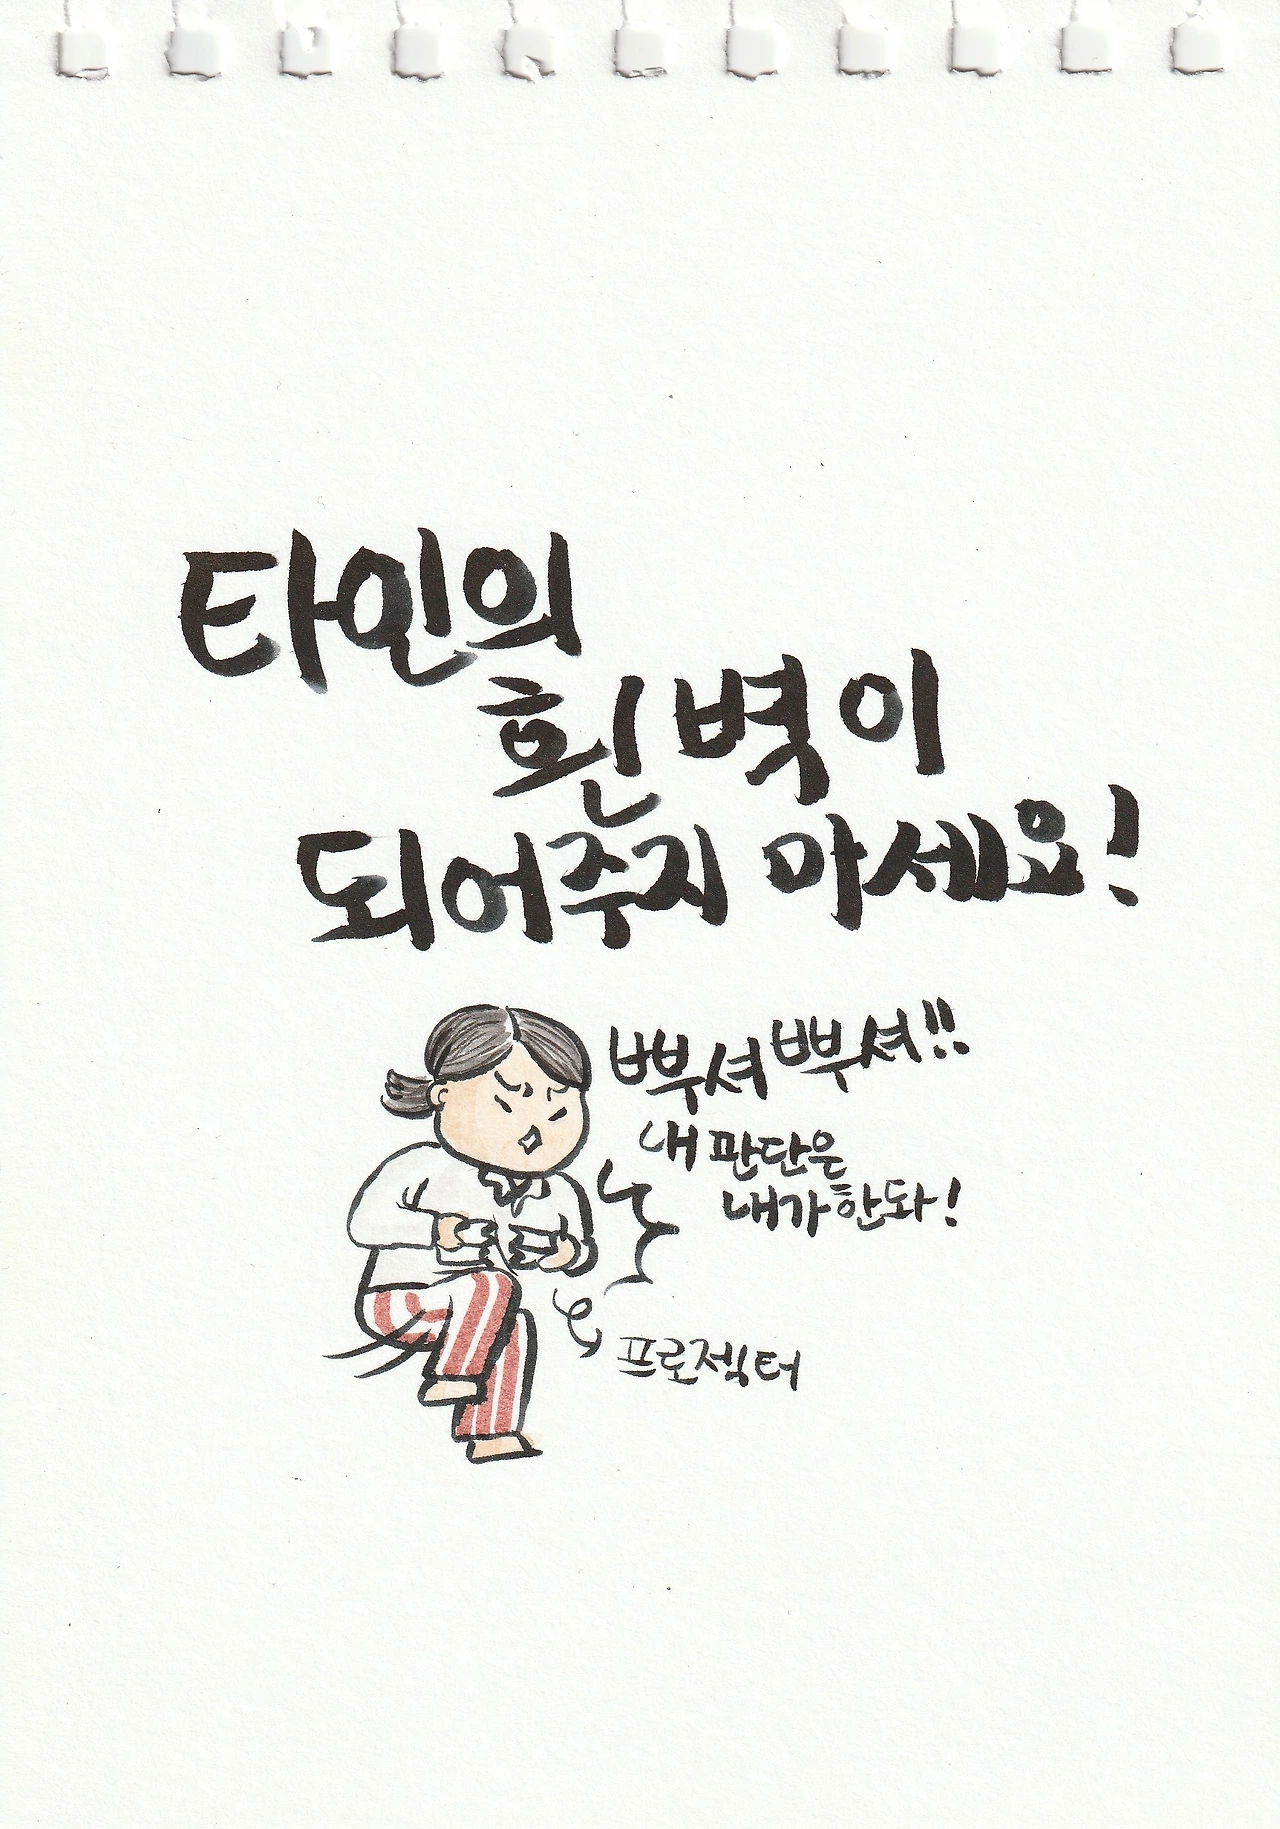 타인의
흰 벽이
되어주지 마세요!
뿌셔 뿌셔!!
내 판단은
내가 한돠!
프로젝터